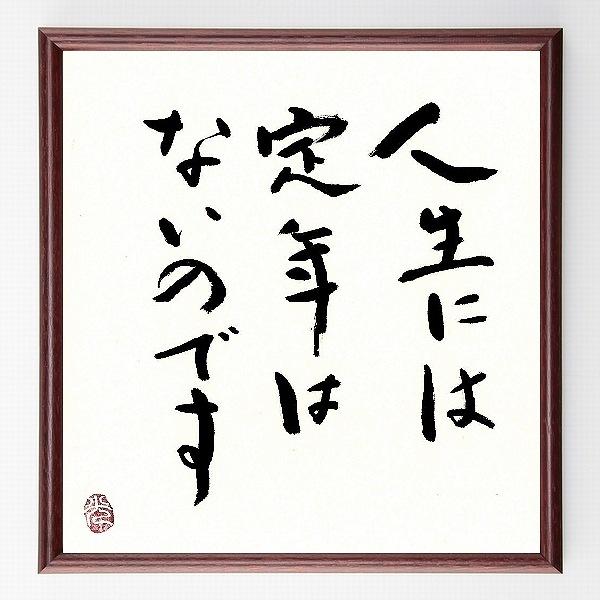 人生には
定年は
ないのです